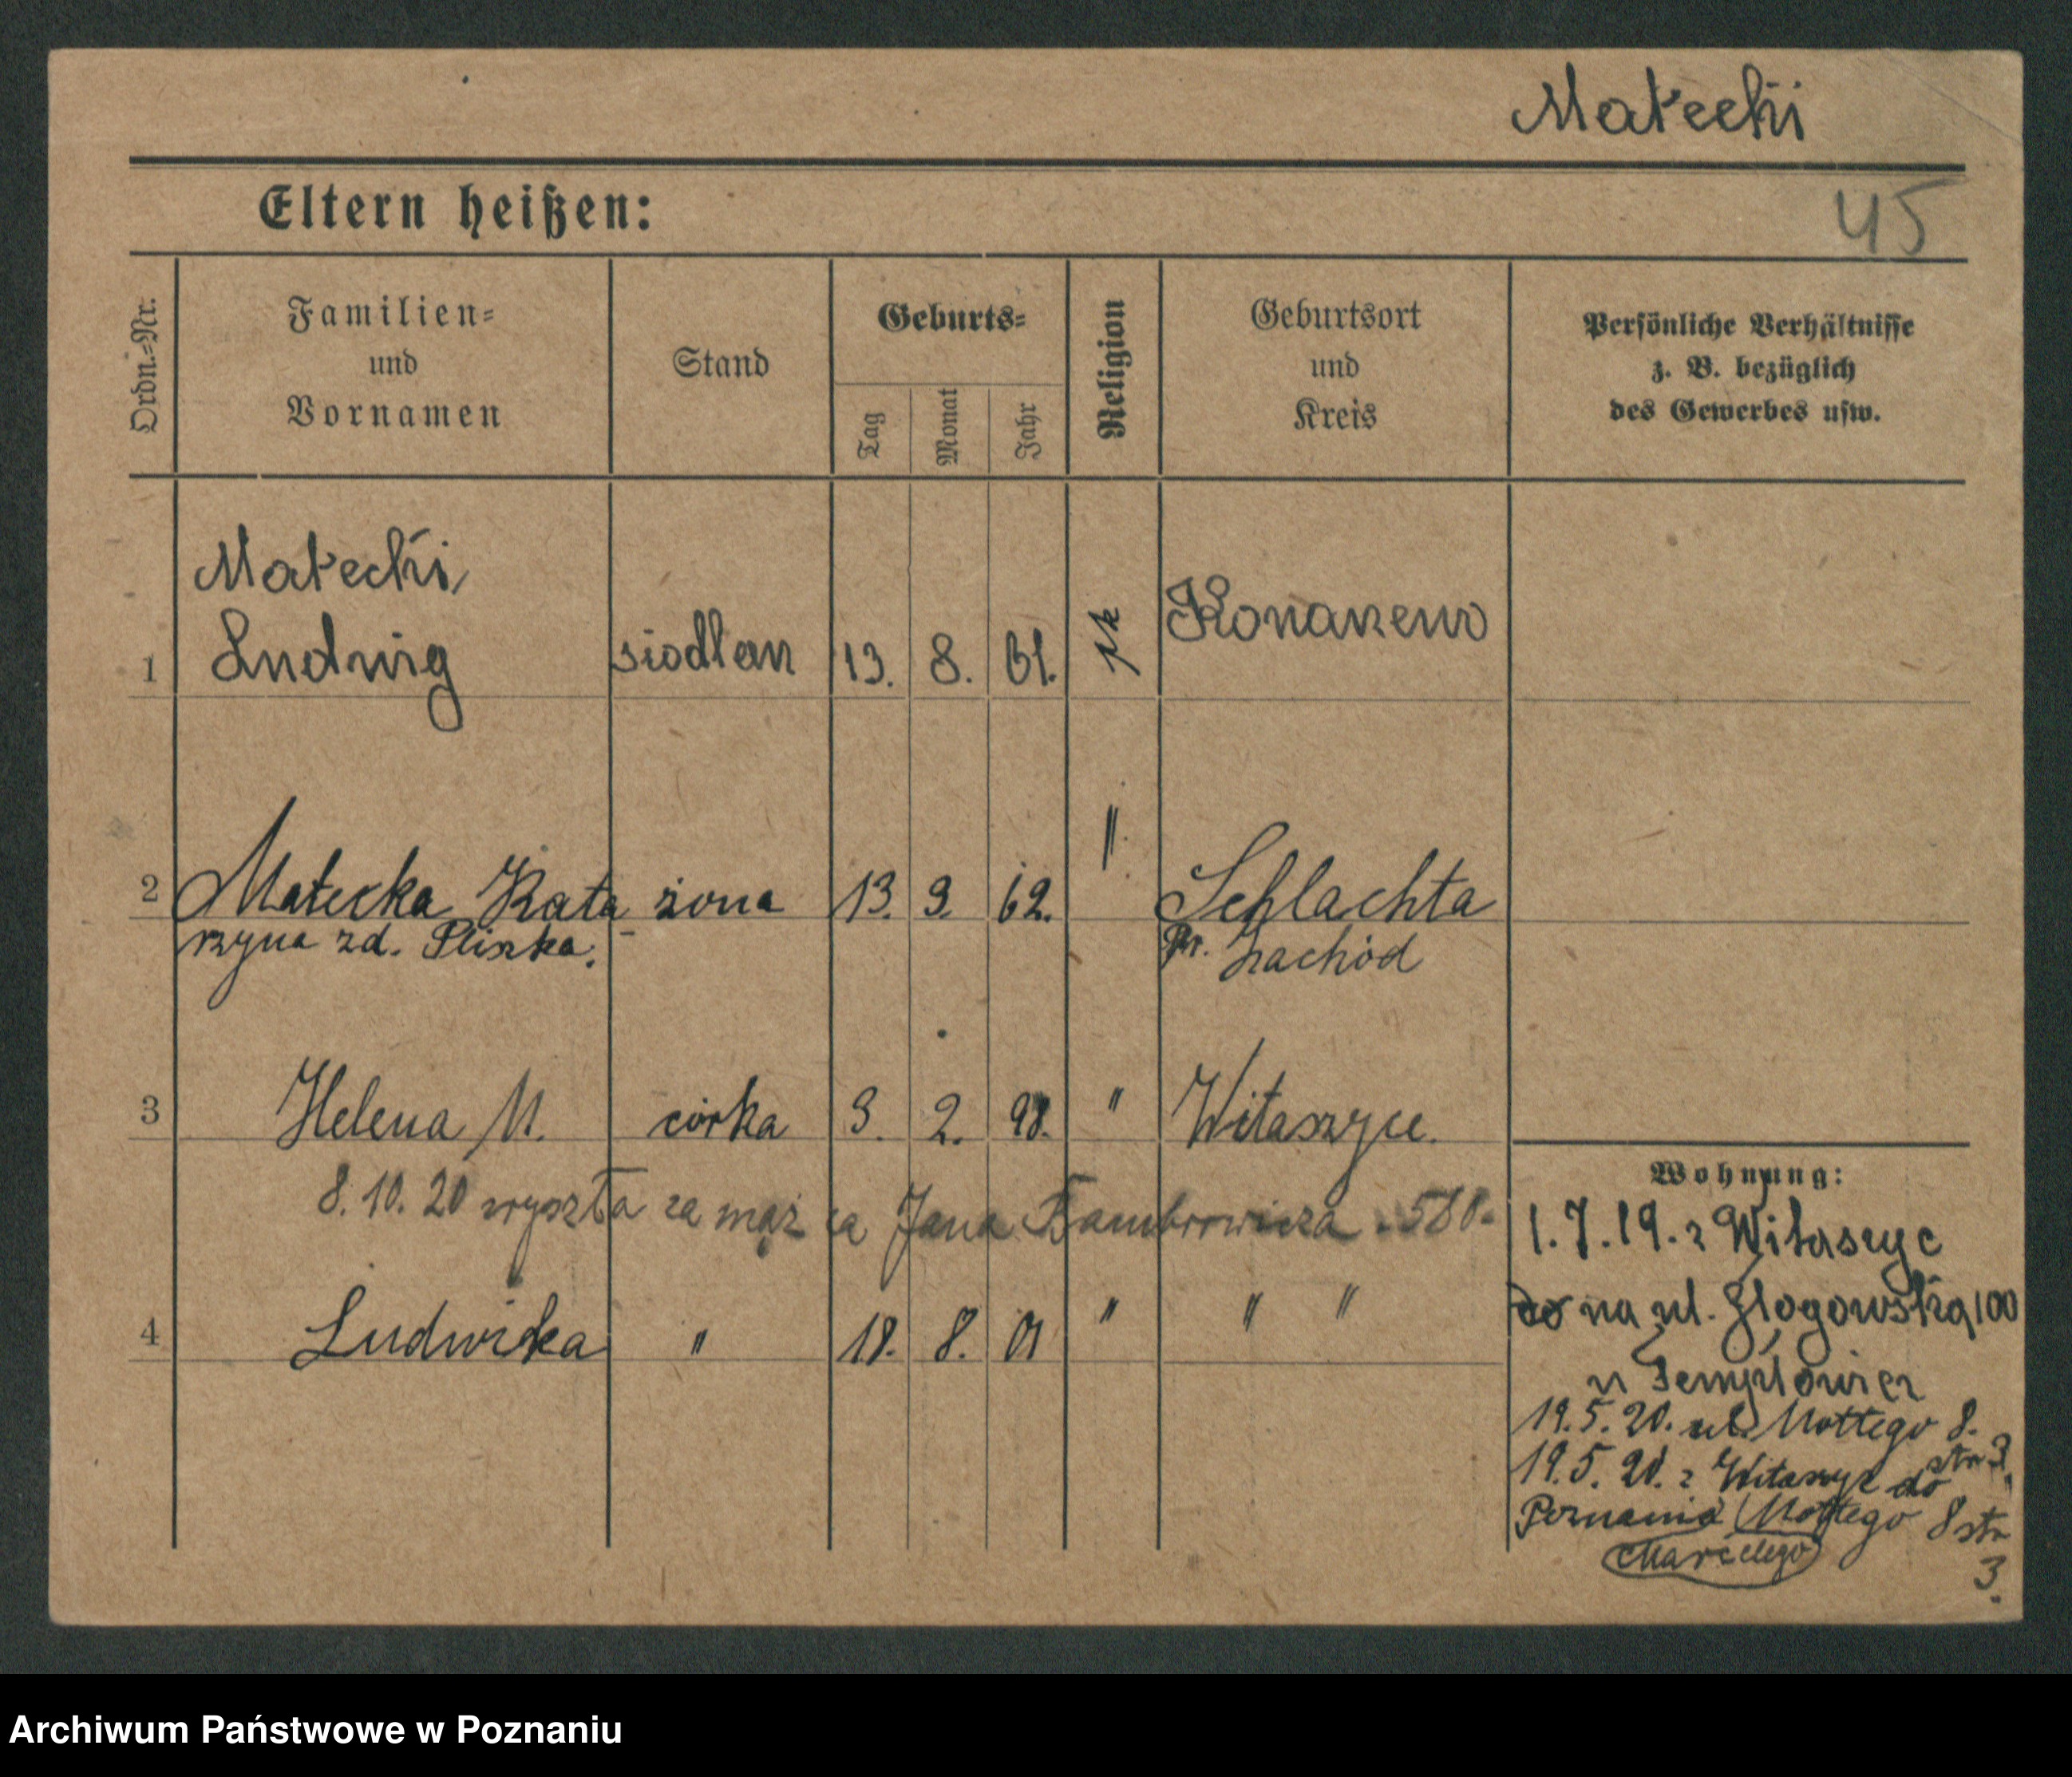 Małecki
Eltern heißen:
45
Ordn.-Nr.
Familien-
und
Vornamen
Stand
Geburts-
Tag
Monat
Jahr
Religion
Geburtsort
und
Kreis
Persönliche Verhältnisse
z. B. bezüglich
des Gewerbes usw.
Małecki
1 Ludwig siodlarz 13. 8. 61. rk
2 Małecka Kata- żona 13. 9. 62. " Schlachta
rzyna zd. Pliszka. Pr. Zachód
3 Helena M. córka 3. 2. 98. " Witaszyce.
8. 10. 20 wyszła za mąż za Jana
4 Ludwika " 18. 8. 01 " " "
Wohnung:
1.7.19. z Witaszyc
do na ul. Głogowską 100
19.5.20. ul. Mottego 8.
str 3.
19.5.20. z Witaszyc do
Poznania Mottego 8 str
3.
Marcelego
Archiwum Państwowe w Poznaniu